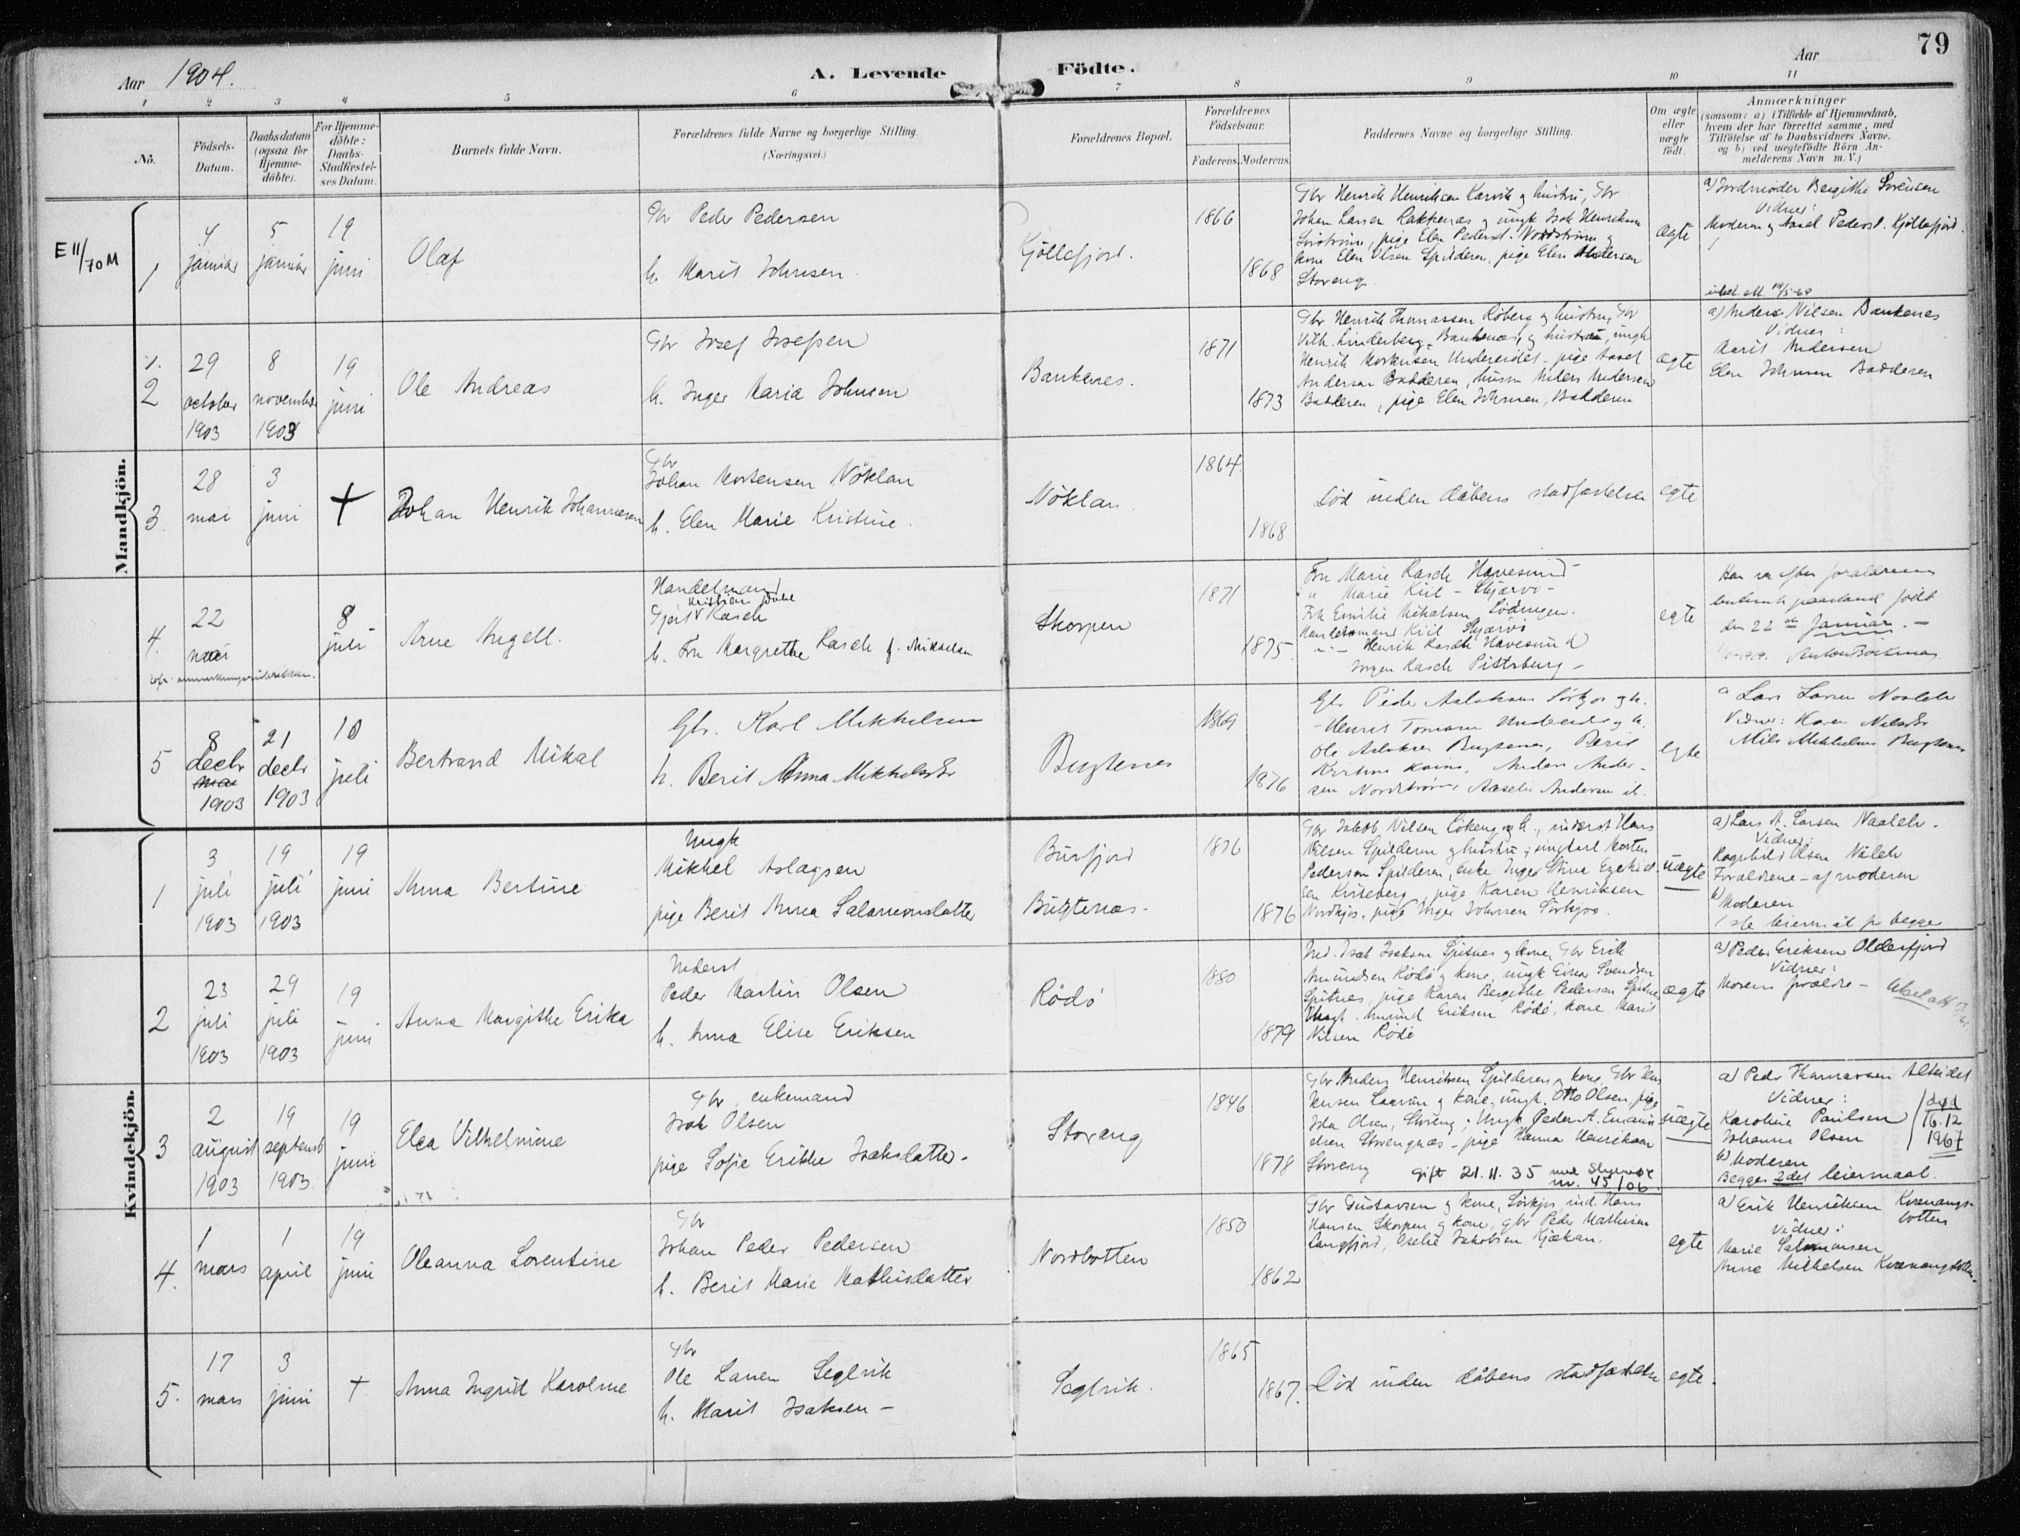 79
Aar 1904.
A. Levende Födte.
Aar
1 2 3 4 5 6 7 8 9 10 11
No.
Födsels-Datum.
Daabsdatum (ogsaa for Hjemme-döbte).
For Hjemme-döbte: Daabs-Stadfæstel-ses Datum.
Barnets fulde Navn.
Forældrenes fulde Navne og borgerlige Stilling.
(Næringsvei.)
Forældrenes Bopæl.
Forældrenes Födselsaar.
Faderens. Moderens.
Faddernes Navne og borgerlige Stilling.
Om ægte eller uægte födt.
Anmærkninger
(saasom: a) i Tilfælde af Hjemmedaab, hvem der har forrettet samme, med Tilföielse af to Daabsvidners Navne, og b) ved uægtefödte Börn An-melderens Navn m. V.)
Mandkjön.
E II/70 M
1
4 januar
5 januar
19 juni
Olaf
Gbr Peder Pedersen
h. Marit Johnsen
Kjöllefjord.
1866
1868
Gbr Henrik Henriksen Karvik og hustru, Gbr
Johan Larsen Rakkenæs og ungk Isak Henriksen
pige Elen Pedersd.
kone Elen Olsen Spilderen, pige Elen Andersen
Storeng
ægte
a) Jordmoder Bergithe Sörensen
Vidner:
Moderen og Aasel Pedersd. Kjöllefjord.
2
29 october 1903
8 november 1903
19 juni
Ole Andreas
Gbr Josef Josefsen
h. Inger Maria Johnsen
Baukenes.
1871
1873
Gbr Henrik Thomassen Röberg og hustru, Gbr
Vilh. Linderberg, Baukenæs, og hustru, ungk
Henrik Mortensen Undereidet, pige Aasel
Andersen Badderen, husm Nielss Andersen
Badderen, pige Elen Johnsen, Badderen
ægte
a) Anders Nilsen Baukenes
Vidner:
Marit Andersen
Elen Johnsen Badderen
3.
28 mai
3 juni
+
Johan Henrik Johannesen
Gbr
Johan Mortensen Nöklan
h. Elen Marie Kristine.
Nöklan
1864.
1868
Död inden dåbens stadfæstelse
egte
4.
22 mai
8 juli
Arne Angell.
Handelsmand
Gjert Kristian Dahl Rasch
h. Fru Margrethe Rasch f. Mikkelsen
Skorpen
1871
1875.
Fru Marie Rasch Havesund
" Marie Kiil - Skjærvö -
Frk Emilie Mikalsen Lödingen.
Handelsmand Kiil Skjærvö
- " - Henrik Rasch Havesund
Jörgen Rasch Pittsburg -
egte
den 22de Januar. -
5
8 decbr 1903
21 decbr 1903
10 juli
Bertrand Mikal
Gbr. Karl Mikkelsen
h. Berit Anna Mikkelsdtr
Bugtenes
1869
1876
Gbr Peder Aslaksen Sörkjos og h.
Ole Aslaksen Bugtenes, Berit
Anders Ander-
sen Nordströmen, Aaselie Andersen ib.
egte
a Lars Larsen Naalelv
Vidner: Karen Nilsdtr
Nils Mikkelsen Bugtenes
Kvindekjön.
1
3 juli 1903
19 juli 1903
19 juni
Anna Bertine
Ungk
Mikkel Aslagsen
pige Berit Anna Salamonsdatter
Burfjord
Bugtenæs.
1876
1876
Gbr Jakob Nilsen Lökeng og h., inderst Hans
Nilsen Spilderen og hustru, ungkarl Morten
Pedersen Spilderen, enke Inger Stina Ezekiel-
sen Kviteberg, pige Karen Henriksen
Nordkjos, pige Inger Johnsen Sörkjos.
uægte
a) Lars A. Larsen Naalelv.
Vidner:
Ragnhild Olsen Nålelv
Forældrene - af moderen
b) Moderen
1ste leiermål for begge
2
23 juli 1903
29 juli 1903
19 juni
Anna Margithe Erika
Inderst
Peder Martin Olsen
h. Anna Elise Eriksen
Rödö
1880
1879
Ind. Isak Isaksen Spitnes og kone, Gbr Erik
Amundsen Rödö og kone, ungk Einar Svendsen
Spitnes, pige Karen Bergithe Pedersen Spitnes
Ungk. Amund Eriksen Rödö, kone Marit
Nilsen Rödö
ægte
a) Peder Eriksen Olderfjord
Vidner:
Morens forældre -
3
2 august 1903
19 septembr 1903
19 juni
Elea Vilhelmine
Gbr, enkemand
Isak Olsen
pige Sofie Erikke Isaksdatter.
Storeng
1846
1878
Gbr Anders Henriksen Spilderen og kone, Gbr
og kone, ungk. Otto Olsen, pige
Ida Olsen, Storeng, Ungk Peder A. Emanu-
elsen Storengnæs, pige Hanna Henriksen
Storeng gift 21.11.35 med
nr. 45/06
uægte
a) Peder Thomassen Alteidet
Vidner:
Karoline Paulsen
Johanna Olsen
b) Moderen
Begges 2det leiermaal.
død
16.12
1967
4.
1 mars
1 april
19 juni
Oleanna Lorentine
Gbr
Johan Peder Pedersen
h. Berit Marie Mathisdatter
Nordbotten
1850
1862
Gbr Gustavsen og kone, Sörkjos, ind. Hans
Hansen Skorpen og kone, gbr Peder Mathisen
Langfjord, Oselie Jakobsen Kjækan.
egte
a) Erik Henriksen Kvænangs-
botten
Vidner:
Marie Salamonsen
Anna Mikkelsen Kvænangsbotten.
5.
17 mars
3 juni
+
Anna Ingrid Karoline
Gbr
Ole Larsen Seglvik
h. Marit Isaksen -
Seglvik.
1865
1867.
Död inden dåbens stadfæstelse
egte.